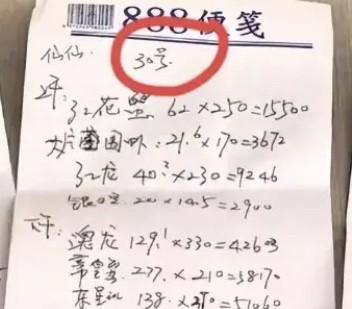 888便笺
仙仙. 30号.
红花蟹 62×250=15500
21.6×170=3672
红龙 40.2×230=9246
20×145=2900
澳龙 129.1×330=42603
277.×210=58170
东星斑 138.×370=51060